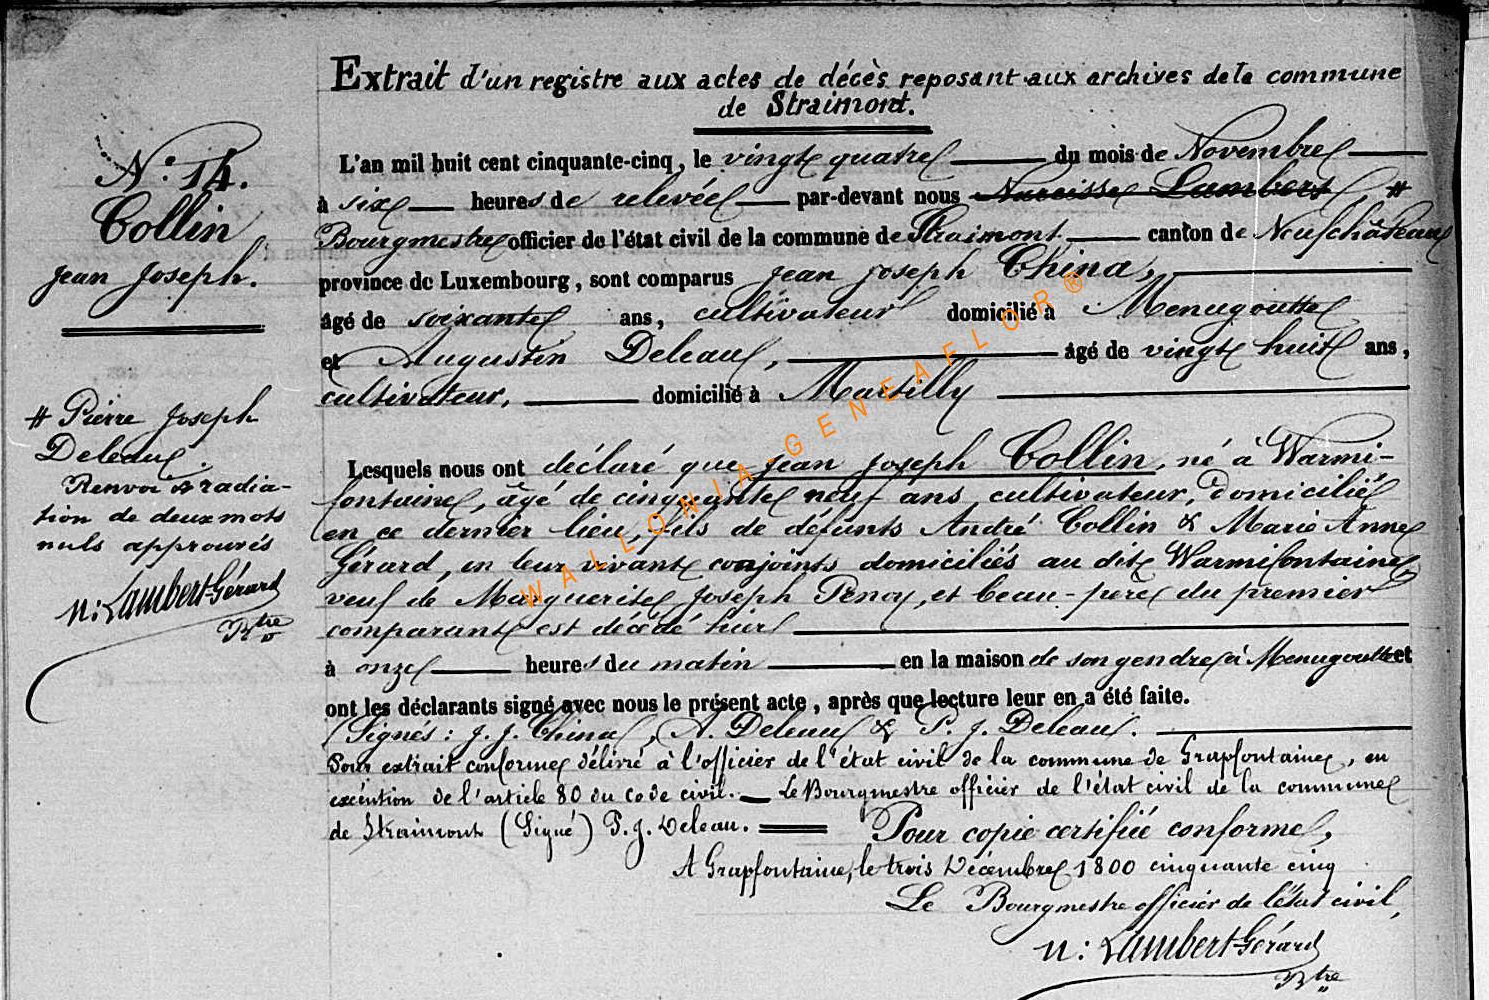 Extrait d'un registre aux actes de décès reposant aux archives de la commune
de Straimont.
N.° 14.
Collin
Jean Joseph.
L'an mil huit cent cinquante-cinq, le vingt quatre du mois de Novembre
à six heures de relevée par-devant nous Narcisse Lambert #
Bourgmestre officier de l'état civil de la commune de Straimont canton de Neufchâteau
province de Luxembourg, sont comparus Jean Joseph China,
âgé de soixante ans, cultivateur domicilié à Menugoutte
et Augustin Deleau, âgé de vingt huit ans,
cultivateur, domicilié à Martilly
# Pierre Joseph
Deleau.
Renvoi & radia-
tion de deux mots
nuls approuvés
N: Lambert-Gérard
Btre
Lesquels nous ont déclaré que Jean Joseph Collin, né à Warmi-
fontaine, âgé de cinquante neuf ans, cultivateur, domicilié
en ce dernier lieu, fils de défunts André Collin & Marie Anne
Gérard, en leur vivant conjoints domiciliés au dit Warmifontaine
veuf de Marguerite Joseph Penoy, et beau-père du premier
comparant est décédé hier
à onze heures du matin en la maison de son gendre à Menugoutte et
ont les déclarants signé avec nous le présent acte, après que lecture leur en a été faite.
(Signés: J. J. China, A. Deleau & P. J. Deleau.
Pour extrait conforme délivré à l'officier de l'état civil de la commune de Grapfontaine, en
exécution de l'article 80 du Code civil. Le Bourgmestre officier de l'état civil de la commune
de Straimont (Signé) P. J. Deleau. Pour copie certifiée conforme,
A Grapfontaine, le trois Décembre 1800 cinquante cinq
Le Bourgmestre officier de l'état civil,
N: Lambert-Gérard
Btre
WALLONIA-GENEAFLOR®